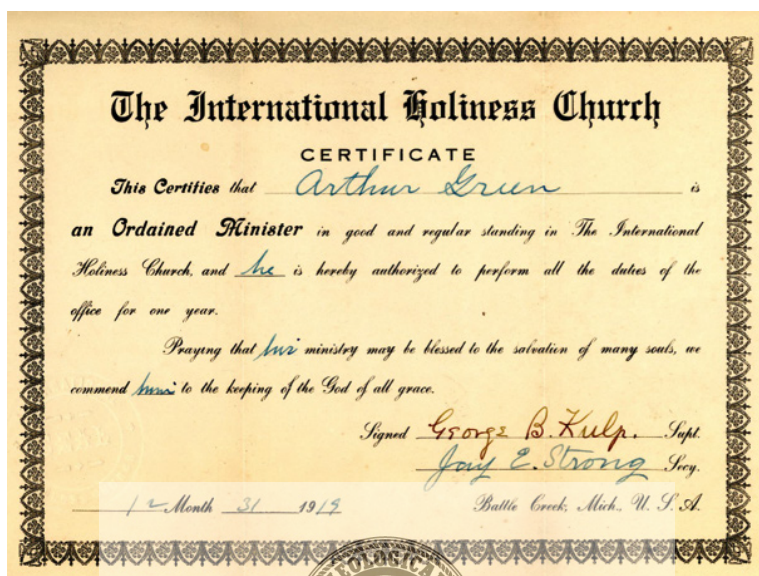 The International Holiness Church
CERTIFICATE
This Certifies that Arthur Green is
an Ordained Minister in good and regular standing in The International
Holiness Church, and he is hereby authorized to perform all the duties of the
office for one year.
Praying that his ministry may be blessed to the salvation of many souls, we
commend him to the keeping of the God of all grace.
Signed George B. Kulp. Supt.
Jay E. Strong Secy.
12 Month 31 1919 Battle Creek, Mich., U. S. A.